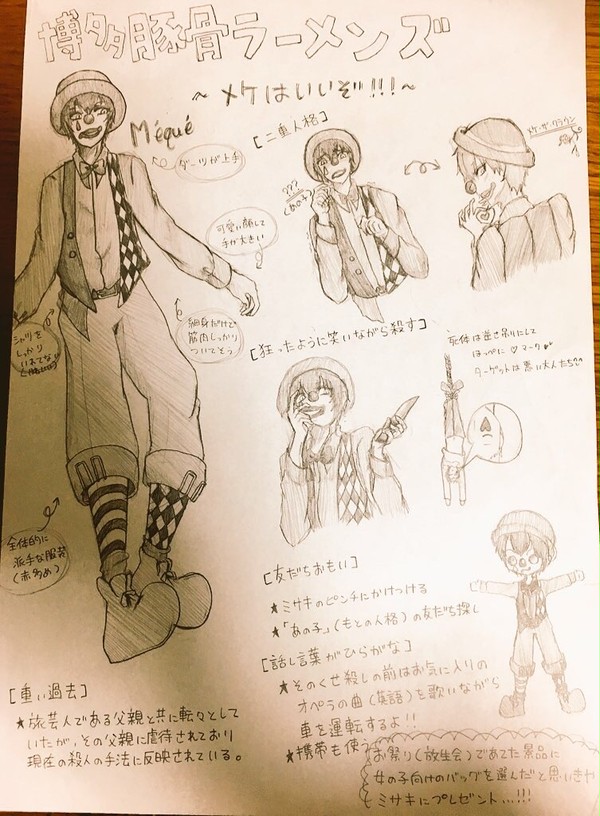 博多豚骨ラーメンズ
～メケはいいぞ!!!～
Méqué
ダーツが上手
[二重人格]
???
(あの子)
メケ・ザ・クラウン
可愛い顔して
手が大きい
シャツを
しっかり
細身だけど
筋肉しっかり
ついてそう
[狂ったように笑いながら殺す]
死体は逆さ吊りにして
ほっぺに♡マーク
ターゲットは悪い大人たち
全体的に
派手な服装
(赤多め)
[友だちおもい]
★ミサキのピンチにかけつける
★「あの子」(もとの人格)の友だち探し
[話し言葉がひらがな]
★そのくせ殺しの前はお気に入りの
オペラの曲(英語)を歌いながら
車を運転するよ!!
★携帯も使う
[重い過去]
★旅芸人である父親と共に転々として
いたが、その父親に虐待されており
現在の殺人の手法に反映されている。
お祭り(放生会)であてた景品に
女の子向けのバッグを選んだと思いきや
ミサキにプレゼント...!!!